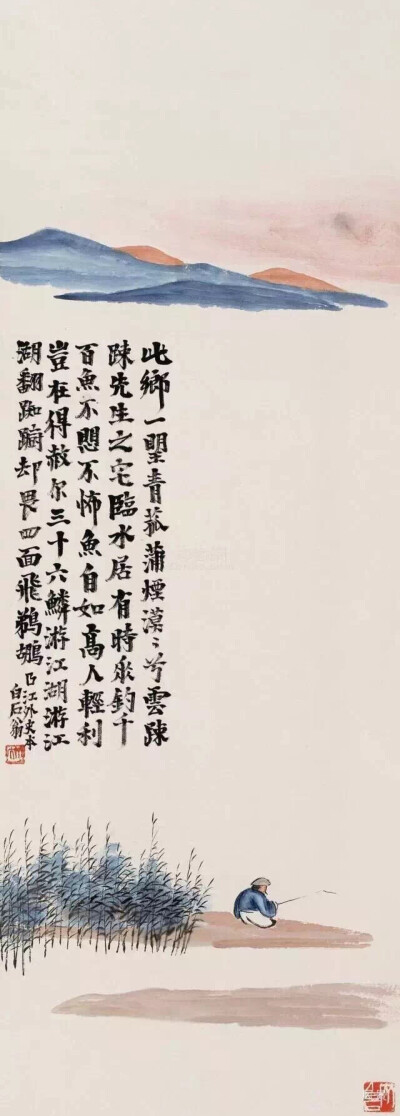 此鄉一望青菰蒲煙漠〻兮雲踈
踈先生之宅臨水居有時垂釣千
百魚不愳不怖魚自如高人輕利
豈在得赦尔三十六鱗游江湖游江
湖翻踟躕却畏四面飛鵜鶘曲江外史本
白石翁